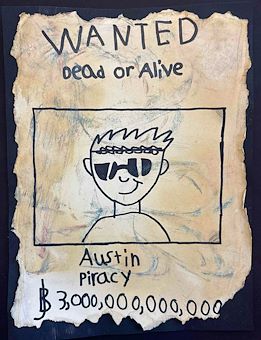 WANTED
Dead or Alive
Austin
Piracy
฿ 3,000,000,000,000